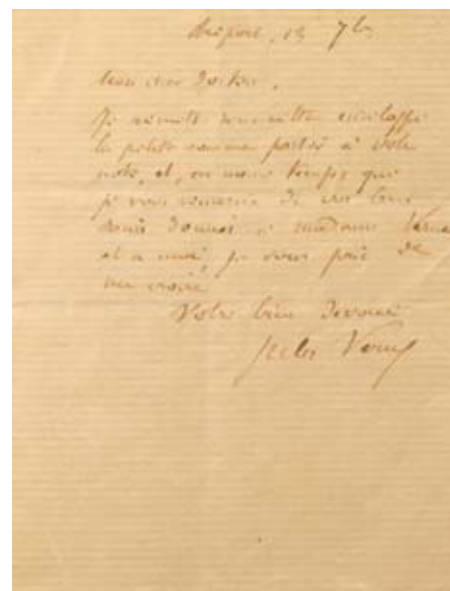 Tréport, 13 7bre
Mon cher Docteur,
Je remets sous cette enveloppe
la petite somme portée à votre
note, et, en même temps que
je vous remercie de vos bons
soins donnés à madame Verne
et à moi, je vous prie de
me croire
Votre bien dévoué
Jules Verne